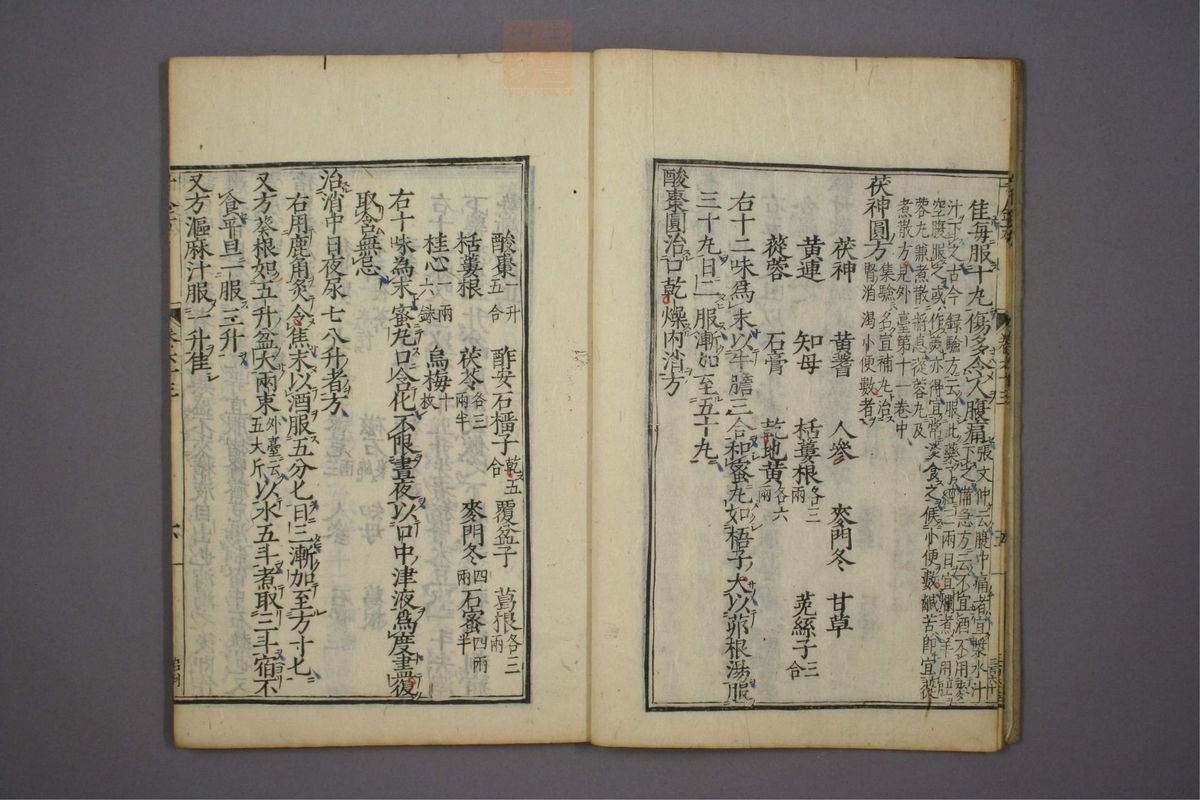 佳每服十丸傷多令人腹痛張文仲云腹中痛者宜漿水汁
下之備急方云不宜酒不用麥
汁下之古今録驗方云服此藥了經三兩日宜爛煮羊
空腹服之或作羮亦得宜常淡食之候小便數鹹苦即宜
蓉丸兼煮散將息蓉丸及
煮散方見外臺第十一卷中
集驗名宣補丸治
腎消渴小便數者
茯神圓方
茯神 黄耆 人參 麥門冬 甘草
黄連 知母 栝蔞根各三兩 菟絲子三合
蓯蓉 石膏 乾地黄各六兩
右十二味爲末以牛膽三合和蜜丸如梧子大以茆根湯服
三十丸日二服漸加至五十丸
酸棗圓治口乾燥内消方
酸棗一升五合 酢安石榴子乾五合 覆盆子 葛根各三兩
栝蔞根 茯苓各三兩半 麥門冬四兩 石蜜四兩半
桂心一兩六銖 烏梅五十枚
右十味爲末蜜丸口含化不限晝夜以口中津液爲度盡復
取含無忌
治消中日夜尿七八升者方
右用鹿角炙令焦末以酒服五分匕日三漸加至方寸匕
又方葵根如五升盆大兩束外臺云五大斤以水五斗煮取三斗宿不
食平旦一服三升
又方漚麻汁服一升佳